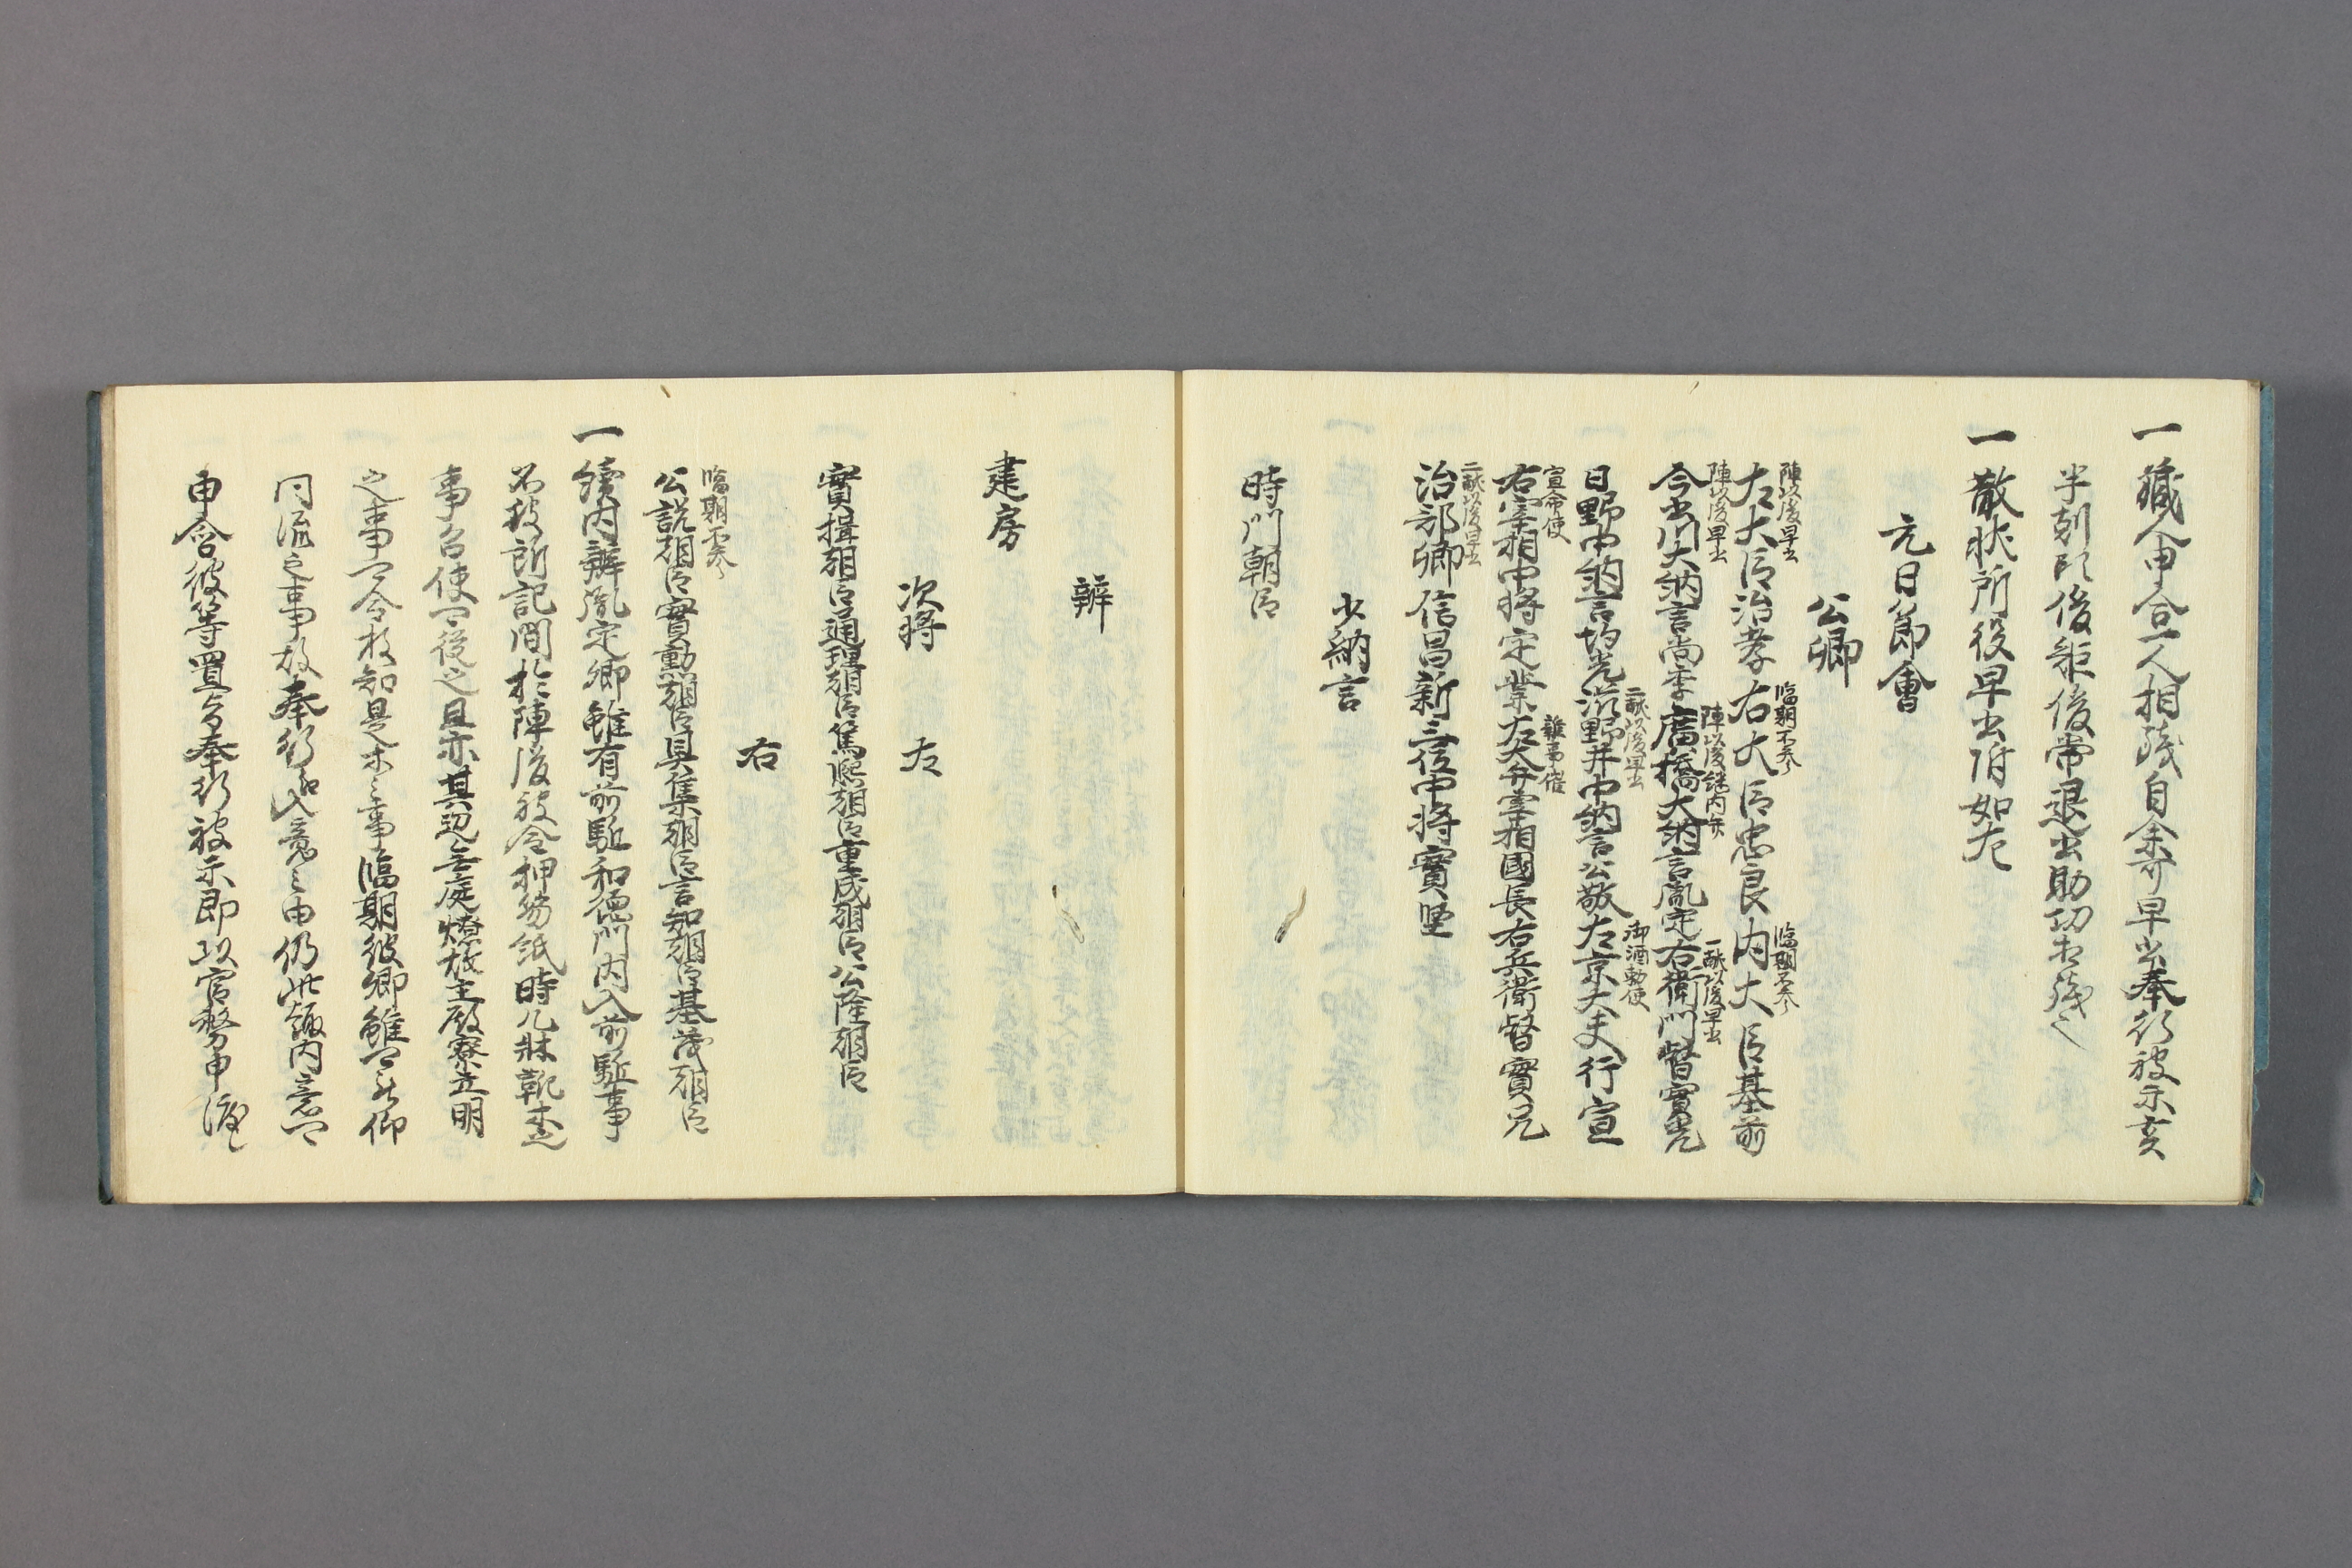 一蔵人申合一人相残自余早出奉行被示亥
半刻頃後帰後常退出助功相残之
一散状所役早出附如左
元日節會
公卿
陣以後早出 臨期不参 臨期不参
左大臣治孝右大臣忠良内大臣基前
陣以後早出 陣以後続内弁 一献以後早出
今出川大納言尚季廣橋大納言胤定右衛門督實光
二献以後早出 御酒勅使
日野中納言均光滋野井中納言公敬左京大夫行宣
宣命使 雜事催
右宰相中将定業左大弁宰相國長右兵衛督實兄
二献以後早出
治部卿信昌新三位中将實堅
少納言
時門朝臣
辨
建房
次将 左
實揖朝臣通理朝臣篤熙朝臣重成朝臣公隆朝臣
右
臨期不参
公説朝臣實勳朝臣具集朝臣言知朝臣基茂朝臣
一續内辨胤定卿雖有前駈和徳門内入前駈事
不被所記間於陣後被令押笏紙時几牀靴木之
事召使可後之且亦其辺無庭燎故主殿寮立明
之事可令存知是木之事臨期彼卿雖可被仰
同流之事故奉行入意之由仍此趣内意可
申合彼等置与奉行被示即以官務申渡